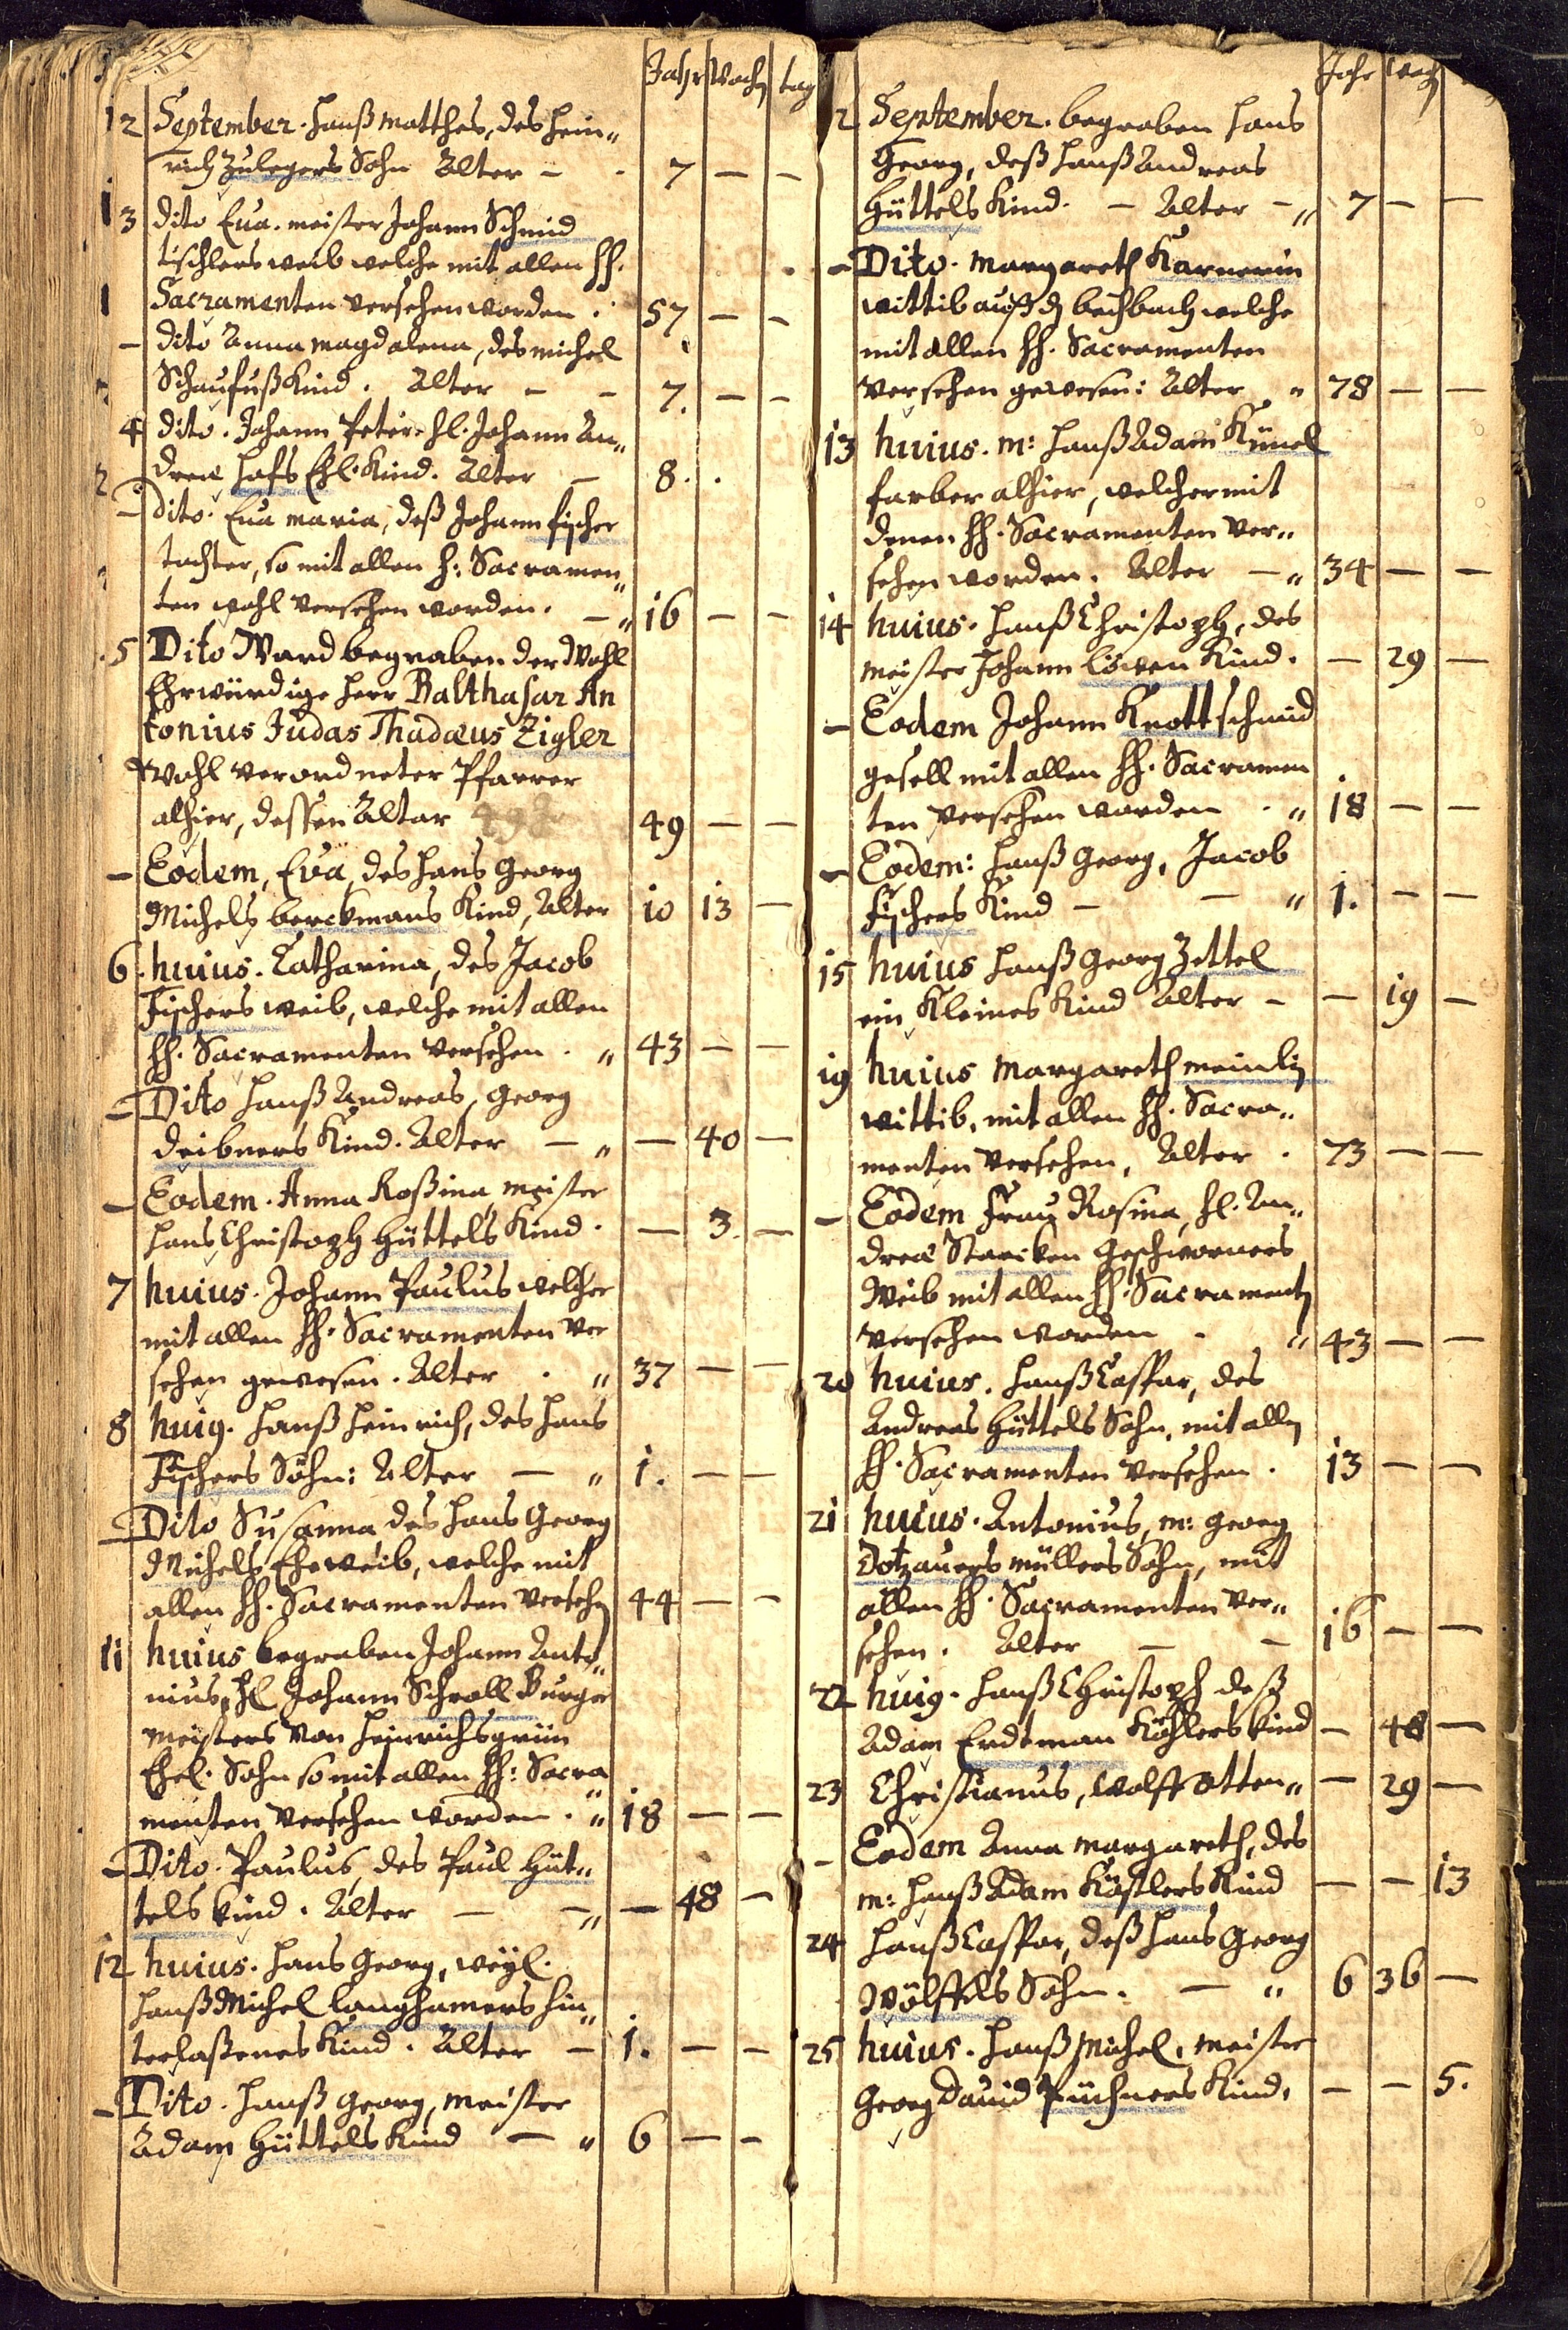 Jahr Woch tag
12 September. Hanß Matthes, des Hein„
rich Zulegers Sohn Alter – . 7 – –
3 dito Eva. meister Johann Schmid
tischlers weib welche mit allen hh.
Sacramenten versehen worden . 57 – –
– dito Anna Magdalena, des michel
Schaufuß Kind. Alter – – 7. – –
4 dito. Johann Peter. hl. Johann An„
dreae hafs Ehl. Kind. Alter – 8. .
– Dito. Eva maria, deß Johann fischer
tochter, so mit allen h: Sacramen„
ten wohl versehen worden. – „ 16 – –
5 Dito Ward begraben der Wohl
Ehrwürdige Herr Balthasar An
tonius Judas Thadaeus Zigler
Wohl verordneter Pfarrer
alhier, dessen Altar 49 – –
– Eodem, Eva, des Hans Georg
Michels berckmans Kind, Alter 10 13 –
6. huius. Catharina, des Jacob
Fischers weib, welche mit allen
hh. Sacramenten versehen . „ 43 – –
– Dito Hanß Andreas, Georg
deibners Kind. Alter – „ – 40 –
– Eodem. Anna Roßina, meister
Hans Christoph Hüttels Kind. – 3. –
7 huius. Johann Paulus welcher
mit allen hh. Sacramenten ver
sehen gewesen. Alter . „ 37 – –
8 huig. Hanß Heinrich, des Hans
Fischers Sohn: Alter – „ 1. – –
– Dito Susanna des Hans Georg
Michels Eheweib, welche mit
allen hh. Sacramenten versehen 44 – –
11 huius begraben Johann Anto„
nius, hl. Johann Schroll Burger
meisters von Heinrichsgrün
Ehel. Sohn so mit allen hh: Sacra„
menten versehen worden. „ 18 – –
– Dito. Paulus, des Paul Hüt„
tels kind. Alter – – „ – 48 –
12 huius. Hans Georg, weyl.
Hanß Michel langhamers hin„
terlaßenes Kind. Alter – 1. – –
– Dito. Hanß Georg, meister
Adam Hüttels Kind – „ 6 – –
Jahr Woch
2 September. begraben Hans
Georg, deß Hanß Andreas
Hüttels Kind. – Alter – „ 7 – –
– Dito. Margareth Karnerin
wittib auß dem bechbach welche
mit allen hh. Sacramenten
versehen gewesen: Alter „ 78 – –
13 huius. m: Hanß Adam Künel
farber alhier, welcher mit
denen hh. Sacramenten ver„
sehen worden. Alter – „ 34 – –
14 huius. Hanß Christoph, des
meister Johann Löwen Kind. – 29 –
– Eodem Johann Knottschmid
gesell mit allen hh. Sacramen
ten versehen worden . „ 18 – –
– Eodem: Hanß Georg, Jacob
Fischers Kind – – „ 1. – –
15 huius Hanß Georg Zettel
ein Kleines Kind Alter – – 19 –
19 huius Margareth meinlin
wittib, mit allen hh. Sacra„
menten versehen, Alter . 73 – –
– Eodem Frau Rosina, hl. An„
dreae Starcken Geschworners
Weib mit allen hh. Sacramenten
versehen worden . „ 43 – –
20 huius. Hanß Caspar, des
Andreas Hüttels Sohn, mit allen
hh. Sacramenten versehen . 13 – –
21 huius. Antonius, m: Georg
Dotzauers müllers Sohn, mit
allen hh. Sacramenten ver„
sehen. Alter – – 16 – –
22 huig. Hanß Christoph deß
Adam Erdtman Köhlers kind – 48 –
23 Christianus, Wolff Otten„ – 29 –
– Eodem Anna Margareth, des
m: Hanß Adam Köstlers Kind – – 13
24 Hanß Caspar, deß Hans Georg
Wölffels Sohn. – „ 6 36 –
25 huius. Hanß Michel, meister
Georg David Püchners Kind, – – 5.